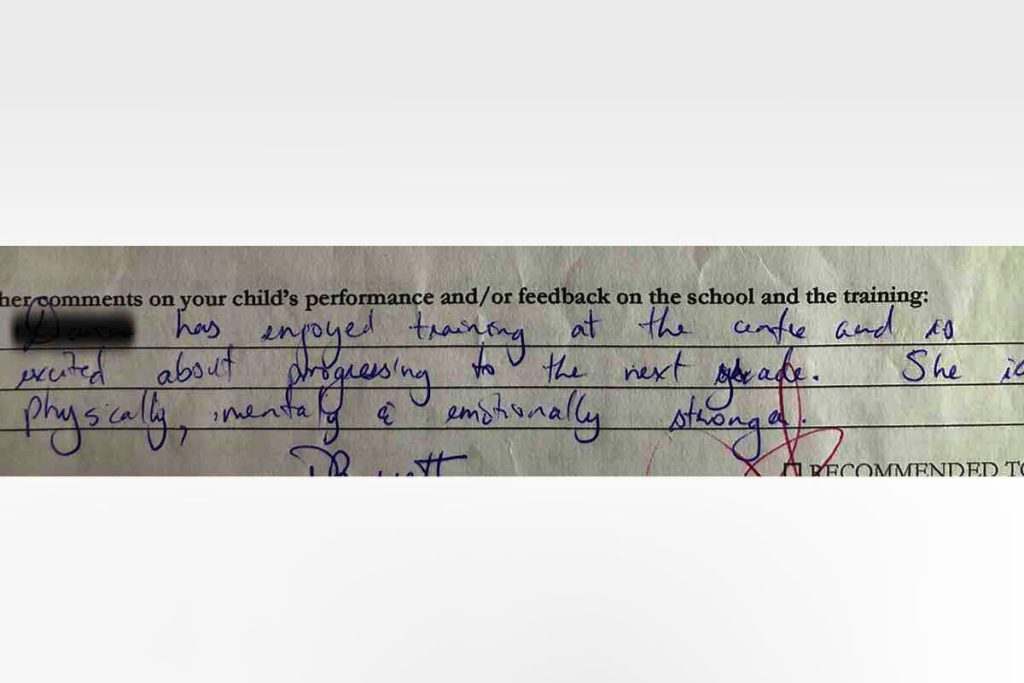 her comments on your child's performance and/or feedback on the school and the training:
has enjoyed training at the centre and is
excited about progressing to the next grade. She is
physically, mentally & emotionally stronger.
RECOMMENDED TO